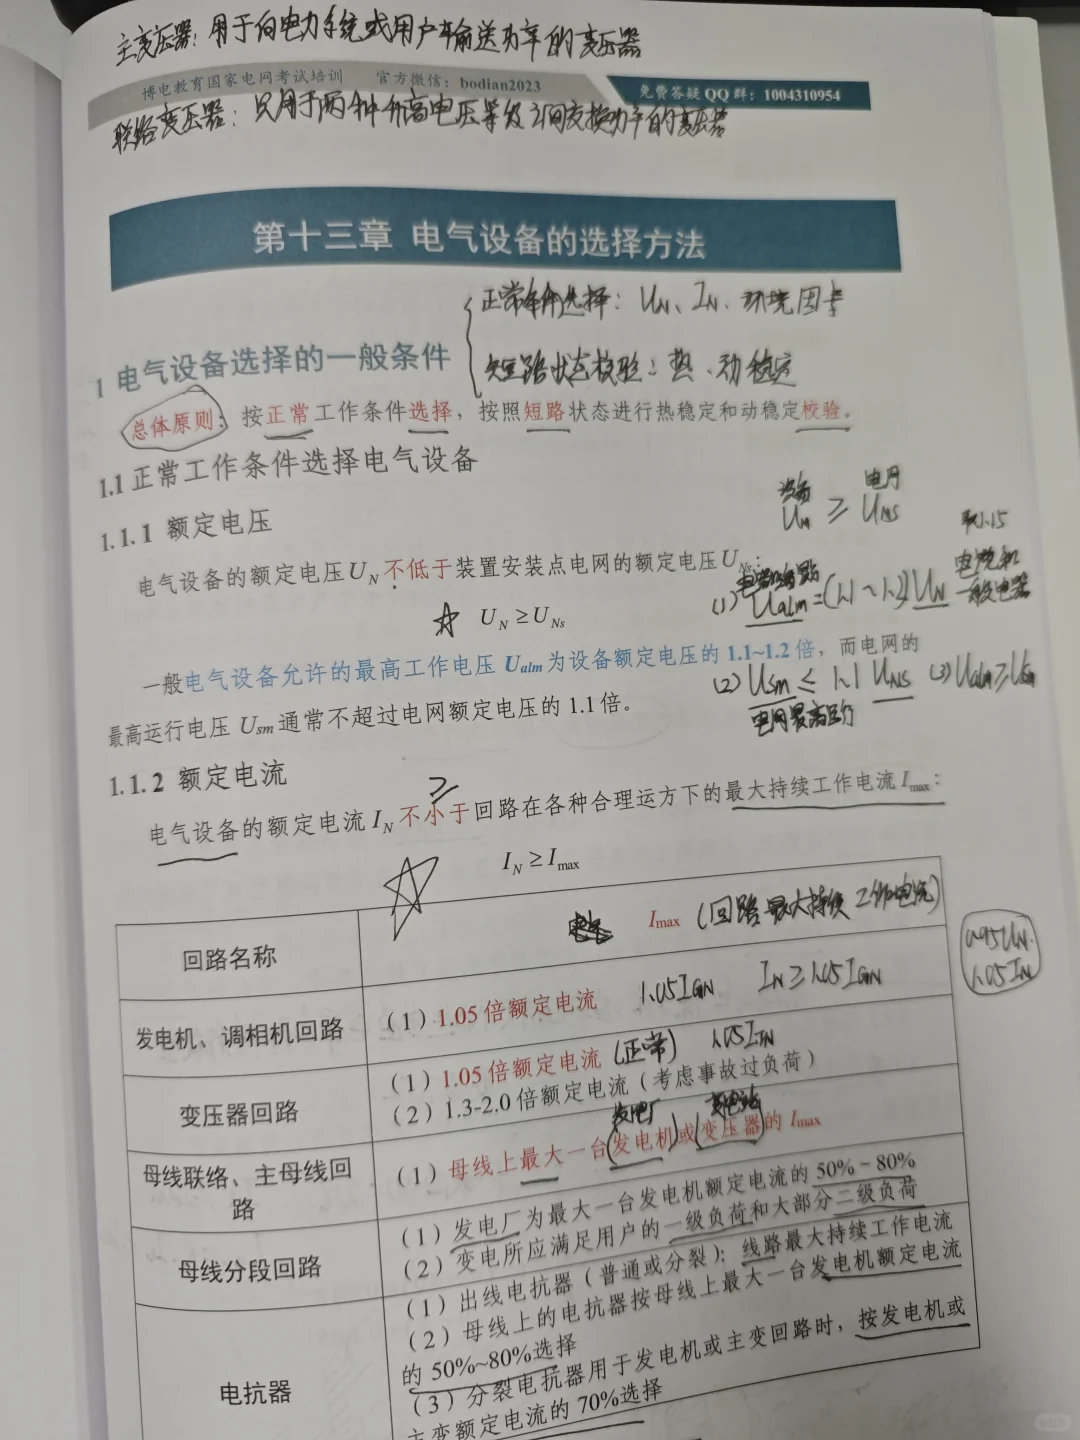 主变压器：用于向电力系统或用户输送功率的变压器
博电教育国家电网考试培训 官方微信：bodian2023 免费答疑QQ群：1004310954
联络变压器：只用于两种升高电压等级之间交换功率的变压器
第十三章 电气设备的选择方法
正常条件选择：UN、IN、环境因素
1 电气设备选择的一般条件
短路状态校验：热、动稳定
总体原则：按正常工作条件选择，按照短路状态进行热稳定和动稳定校验。
1.1 正常工作条件选择电气设备
设备 电网
UN ≥ UNS
1.1.1 额定电压
取1.15
电气设备的额定电压UN不低于装置安装点电网的额定电压UNs：
电缆和
一般电器
(1) Ualm=(1.1~1.2)UN
UN ≥ UNs
一般电气设备允许的最高工作电压 Ualm为设备额定电压的 1.1~1.2 倍，而电网的
(2) Usm ≤ 1.1 UNS (3) Ualm≥Usm
最高运行电压 Usm 通常不超过电网额定电压的 1.1 倍。
电网最高运行
1.1.2 额定电流
≥
电气设备的额定电流 IN 不小于回路在各种合理运方下的最大持续工作电流 Imax：
IN ≥ Imax
回路名称 Imax (回路最大持续工作电流)
0.95UN
1.05IN
发电机、调相机回路 （1）1.05 倍额定电流 1.05IGN IN≥1.05IGN
变压器回路 （1）1.05 倍额定电流 (正常) 1.05ITN
（2）1.3-2.0 倍额定电流（考虑事故过负荷）
发电厂 变电站
母线联络、主母线回路 （1）母线上最大一台发电机或变压器的 Imax
母线分段回路 （1）发电厂为最大一台发电机额定电流的 50%~80%
（2）变电所应满足用户的一级负荷和大部分二级负荷
电抗器 （1）出线电抗器（普通或分裂）：线路最大持续工作电流
（2）母线上的电抗器按母线上最大一台发电机额定电流
的 50%~80%选择
（3）分裂电抗器用于发电机或主变回路时，按发电机或
主变额定电流的 70%选择